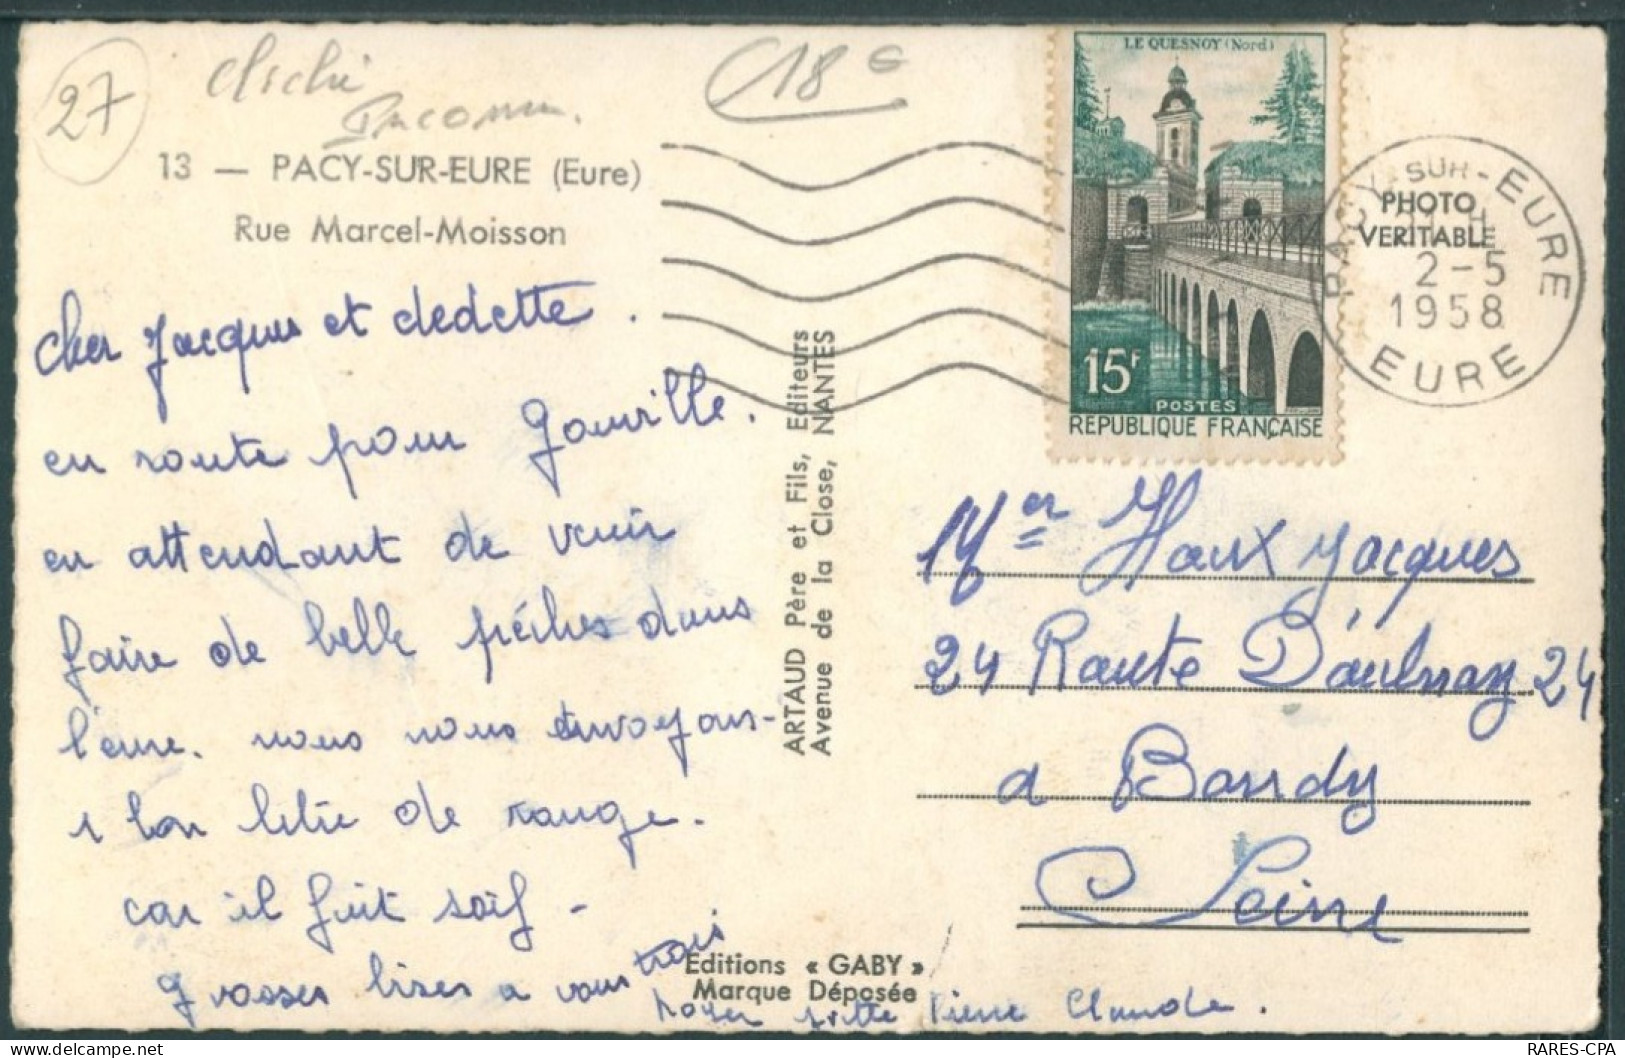 27
Cliché
Inconnu.
18 €
13 — PACY-SUR-EURE (Eure)
Rue Marcel-Moisson
cher Jacques et dedette.
en route pour Gouville.
en attendant de venir
faire de belle pêches dans
l'eure. nous nous envoyons-
1 bon litre de rouge.
car il fait soif -
grosses bises a vous trois
Roger Pierre Claude.
ARTAUD Père et Fils, Editeurs
Avenue de la Close, NANTES
Editions « GABY »
Marque Déposée
LE QUESNOY (Nord)
15F
POSTES
REPUBLIQUE FRANÇAISE
PACY-SUR-EURE
2-5
1958
EURE
PHOTO
VERITABLE
Mer Haux Jacques
24 Route D'aulnay 24
a Bondy
Seine
RARES-CPA